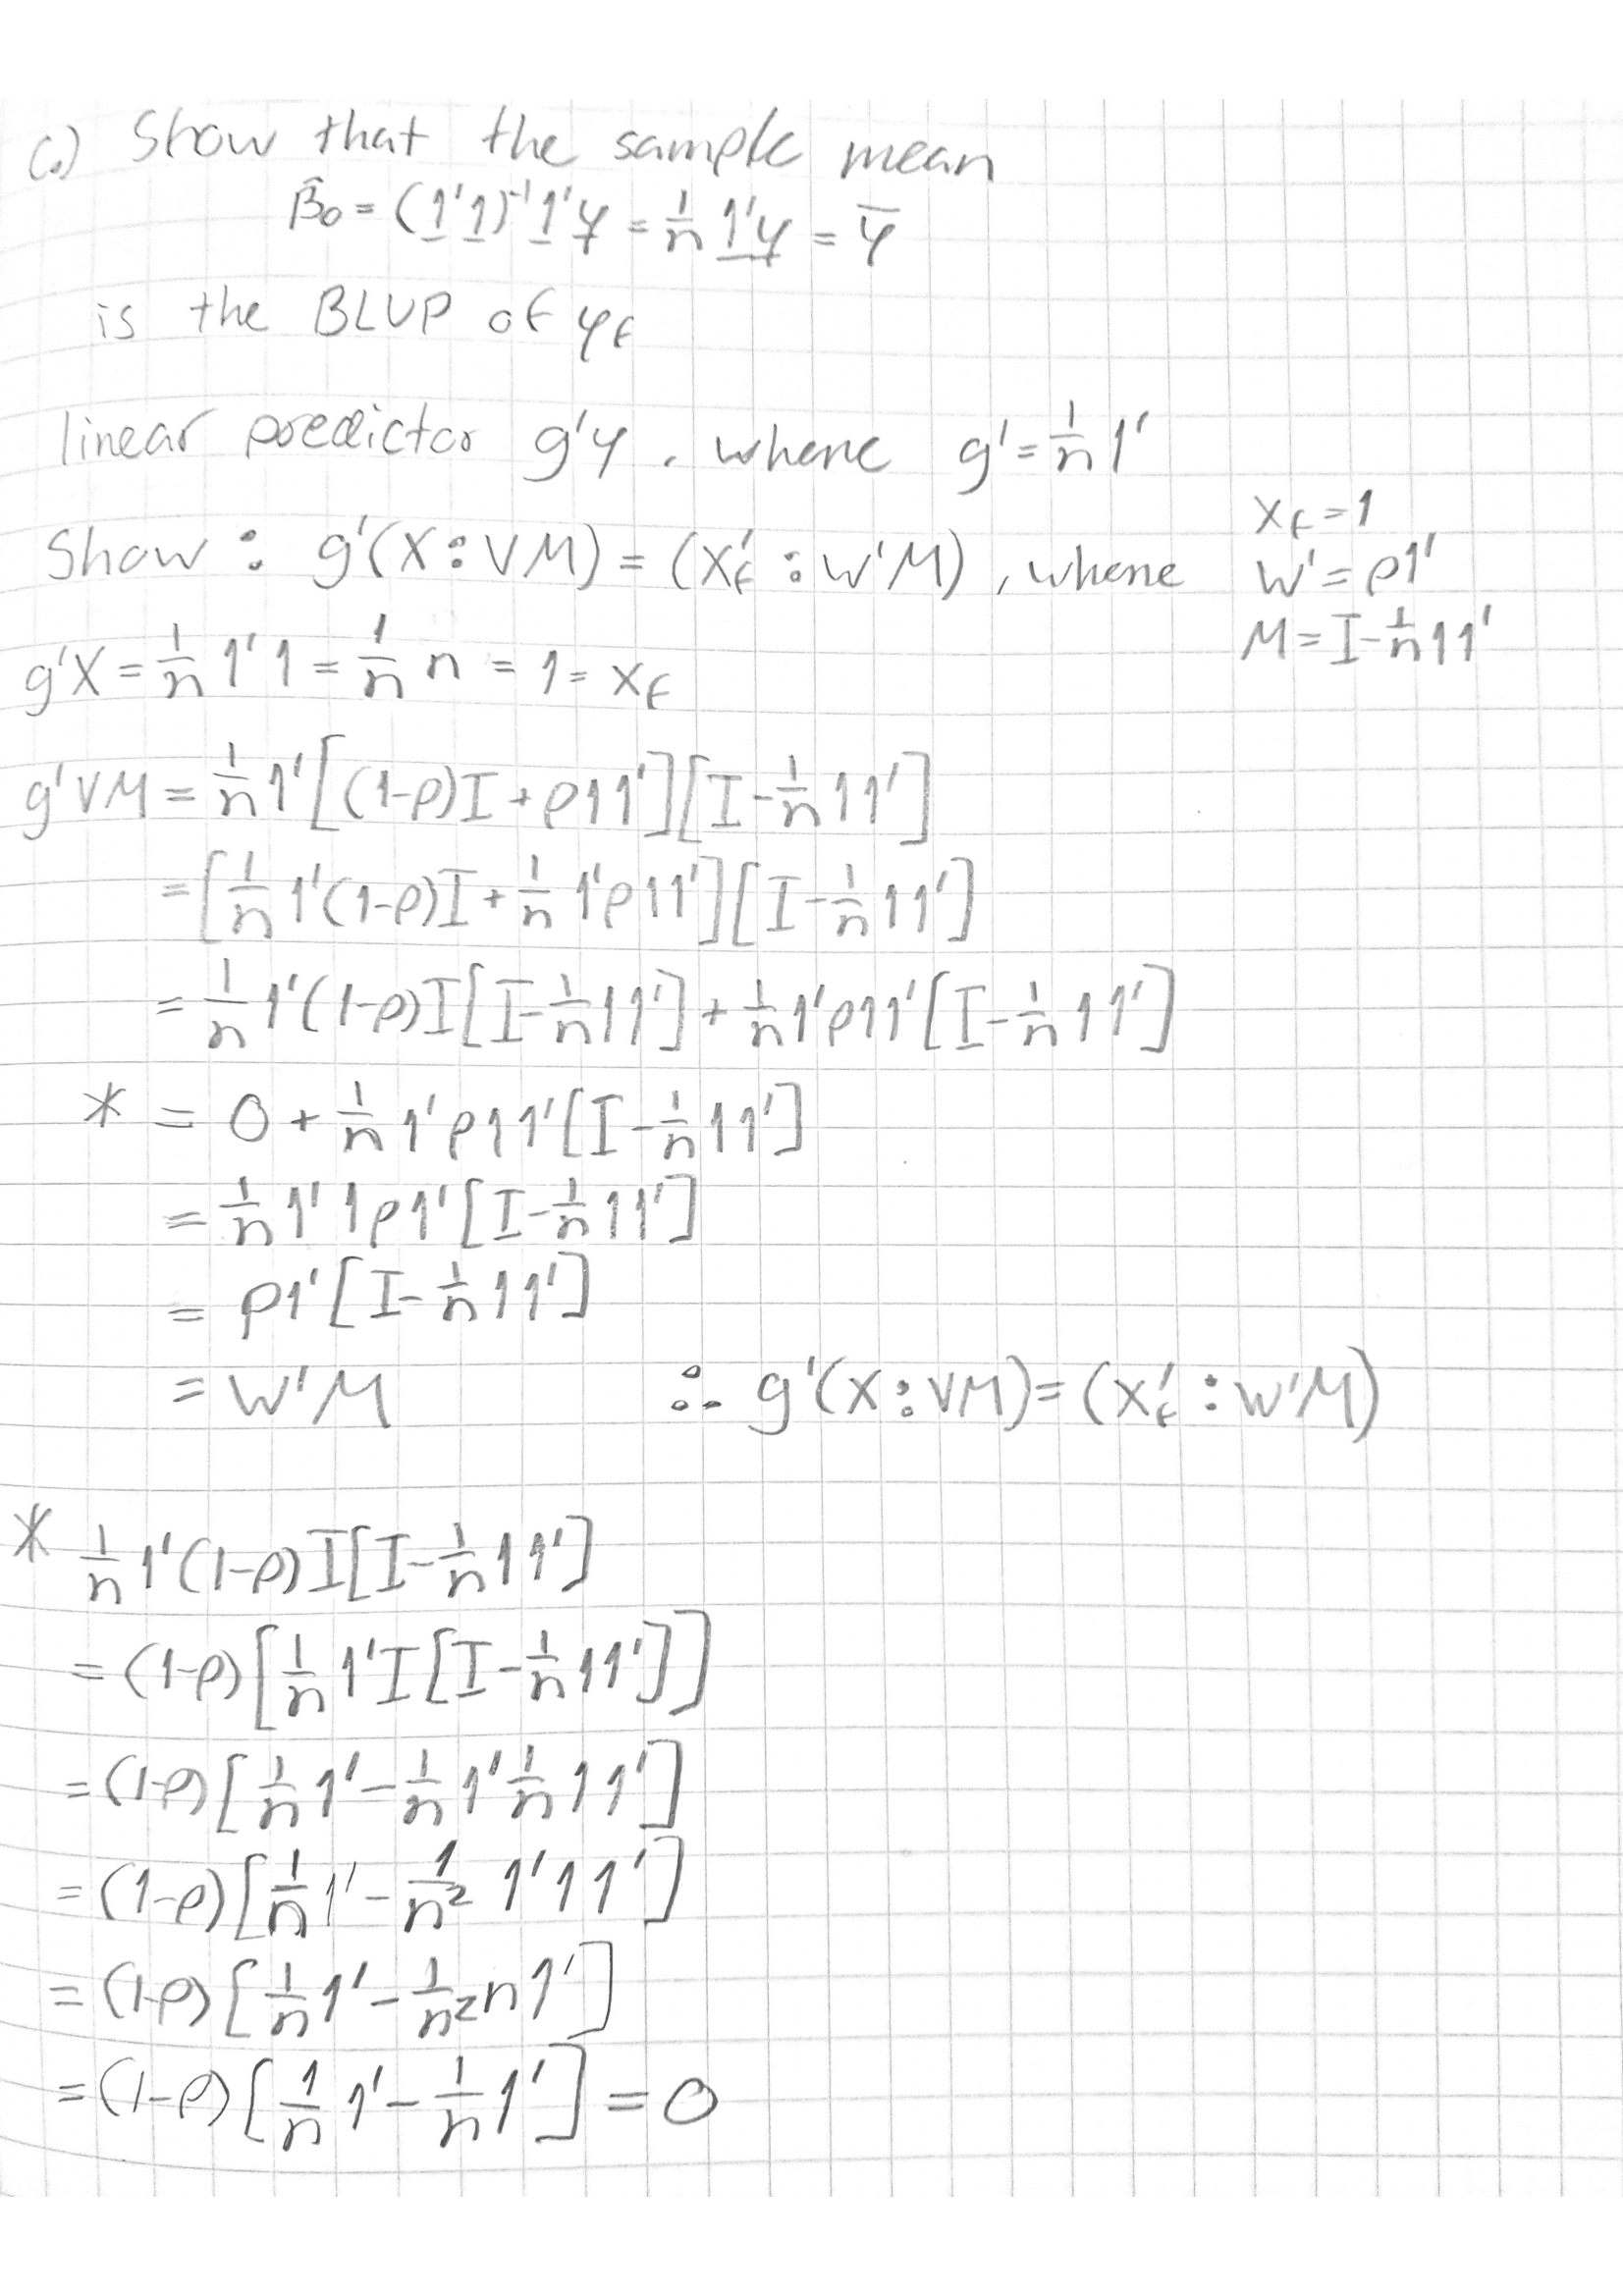 c.) Show that the sample mean
β̂₀ = (1'1)⁻¹1'y = 1/n 1'y = ȳ
is the BLUP of y_f
linear predictor g'y, where g' = 1/n 1'
Show : g'(X : VM) = (x_f' : w'M), where
x_f = 1
w' = ρ1'
M = I - 1/n 11'
g'X = 1/n 1'1 = 1/n n = 1 = x_f
g'VM = 1/n 1'[(1-ρ)I + ρ11'][I - 1/n 11']
= [1/n 1'(1-ρ)I + 1/n 1'ρ11'][I - 1/n 11']
= 1/n 1'(1-ρ)I[I - 1/n 11'] + 1/n 1'ρ11'[I - 1/n 11']
* = 0 + 1/n 1'ρ11'[I - 1/n 11']
= 1/n 1'1ρ1'[I - 1/n 11']
= ρ1'[I - 1/n 11']
= w'M ∴ g'(X : VM) = (x_f' : w'M)
* 1/n 1'(1-ρ)I[I - 1/n 11']
= (1-ρ)[1/n 1'I[I - 1/n 11']]
= (1-ρ)[1/n 1' - 1/n 1' 1/n 11']
= (1-ρ)[1/n 1' - 1/n² 1'11']
= (1-ρ)[1/n 1' - 1/n² n1']
= (1-ρ)[1/n 1' - 1/n 1'] = 0